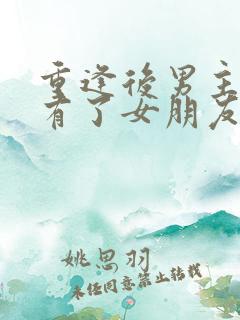 重逢後男主
有了女朋友
姚思羽
未任同意禁止转载